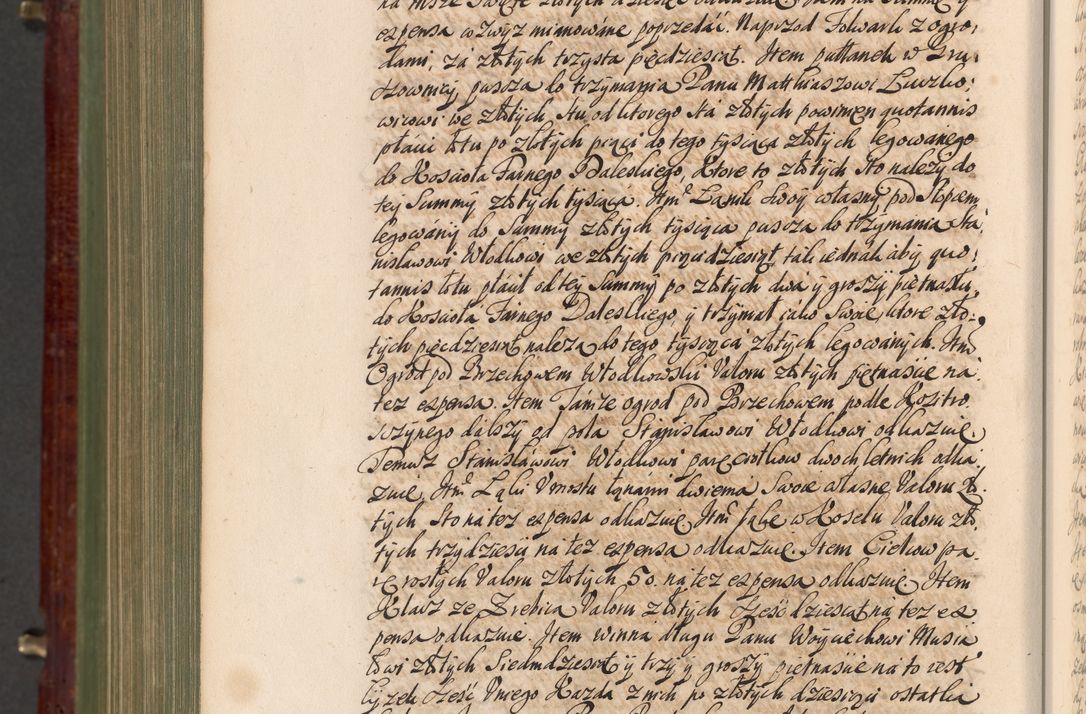 na Msze Swięte złotych dziesięć odkazuię
expensa wzwyz mianowane poprzedać. Naprzod Folwark z ogro:
dami, za złotych trzysta pięcdziesiąt. Item pułłanek w Gra:
puszcza do trzymania Panu Matthiaszowi
wicowi we złotych, stu, od ktorego sta złotych powinien quotannis
płacić łotu po złotych pięci do tego tysiąca złotych legowanego
do Kosciola Farnego Daleskiego, Ktore to złotych sto należy do
tey Summy złotych tysiąca. Itm Łanik swoy własny pod Kopcem
legowany do Summy złotych tysiąca puszcza do trzymania Sta:
nisławowi Włodkowi we złotych pięcidziesiąt, tak iednak aby quo:
tannis łotu płacił od tey Summy po złotych dwa y groszy piętnastu,
do Kosciola Farnego Daleskiego y trzymał iako Swoie, ktore zło:
tych pięcdziesiąt należą do tego tysiąca złotych legowanych. Itm
Ogrod pod Brzechowem Włodkowski Valoru złotych piętnascie na
tez expensa. Item Tamże ogrod pod Brzechowem podle
dalszy od pola Stanisławowi Włodkowi odkazuię.
Temusz Stanisławowi Włodkowi parę ciołkow dwochletnich odka:
zuię, Itm Łąki Vmostu łąnami dwiema Swoie własne Valoru zło:
tych sto na tez expensa odkazuię Itm łąkę w Koselu Valoru zło:
tych trzydziesci na tez expensa odkazuię. Item Ciołkow pa:
rę rosłych Valoru złotych 50. na tez expensa odkazuię. Item
Klacz ze Zrebicą Valoru złotych szescdziesiąt na tez ex:
pensa odkazuię. Item winna długu Panu Woyciechowi Musia:
łowi złotych Siedmdziesiąt y trzy y groszy piętnascie na to iest
łyzek szesc Vniego Kazda z nich po złotych dziesięci ostatka